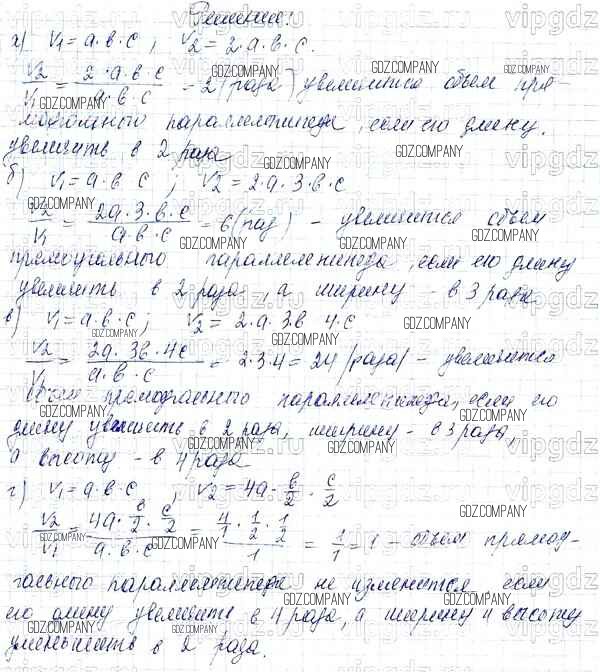 Решение:
а) V₁ = а·в·с, V₂ = 2·а·в·с.
V₂/V₁ = 2·а·в·с / а·в·с = 2 (раза) увеличится объем пря-
моугольного параллелепипеда, если его длину
увеличить в 2 раза
б) V₁ = а·в·с; V₂ = 2·а·3·в·с
V₂/V₁ = 2а·3·в·с / а·в·с = 6 (раз) – увеличится объем
прямоугольного параллелепипеда, если его длину
увеличить в 2 раза а ширину – в 3 раза.
в) V₁ = а·в·с; V₂ = 2·а·3в·4с
V₂/V₁ = 2а·3в·4с / а·в·с = 2·3·4 = 24 (раза) – увеличится
объем прямоугольного параллелепипеда, если его
длину увеличить в 2 раза, ширину – в 3 раза,
а высоту – в 4 раза
г) V₁ = а·в·с, V₂ = 4а·в/2·с/2
V₂/V₁ = 4а·в/2·с/2 / а·в·с = 4/1·1/2·1/2 / 1 = 1/1 = 1 – объем прямоу-
гольного параллелепипеда не изменится если
его длину увеличить в 4 раза, а ширину и высоту
уменьшить в 2 раза.
GDZ.COMPANY
vipgdz.ru